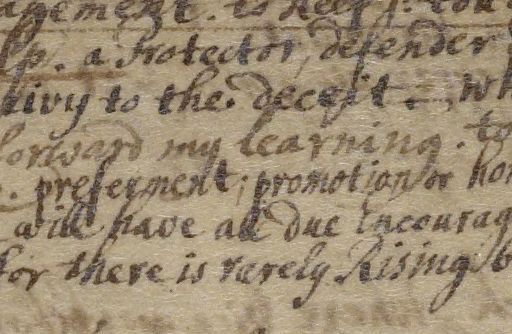 agement. to keep
lp. a Protector, defender
privy to the deceit.
forward my learning. to
preferment; promotion or hon
will have all due Encourag
for there is rarely Rising b